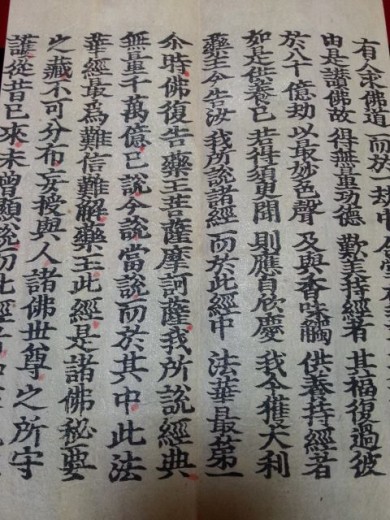 有人求佛道 而於一劫中
由是讃佛故 得無量功德 歎美持經者 其福復過彼
於八十億劫 以最妙色聲 及與香味觸 供養持經者
如是供養已 若得須臾聞 則應自欣慶 我今獲大利
藥王今告汝 我所說諸經 而於此經中 法華最第一
尒時佛復告藥王菩薩摩訶薩我所說經典
無量千萬億已說今說當說而於其中此法
華經最為難信難解藥王此經是諸佛秘要
之藏不可分布妄授與人諸佛世尊之所守
護從昔已來未曾顯說而此經